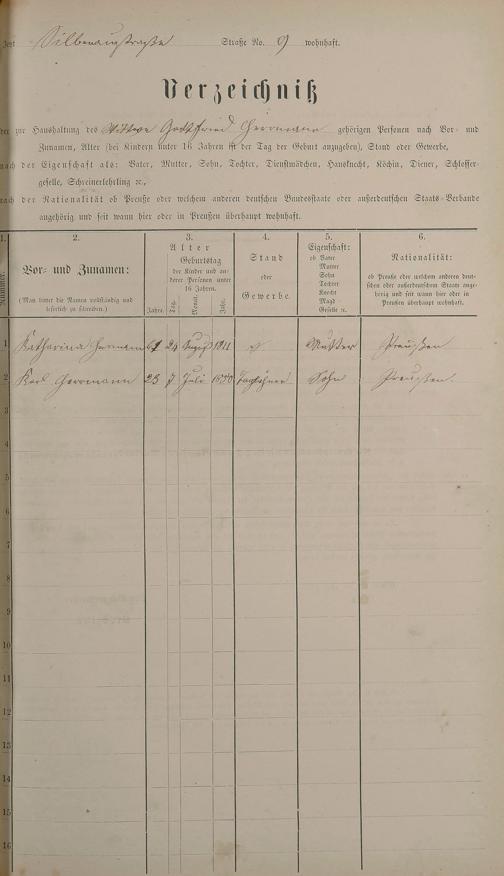 Jetzt Silberaustraße Straße No. 9 wohnhaft.
Verzeichniß
der zur Haushaltung des Wittwe Gottfried Herrmann gehörigen Personen nach Vor- und
Zunamen, Alter (bei Kindern unter 16 Jahren ist der Tag der Geburt anzugeben), Stand oder Gewerbe,
nach der Eigenschaft als: Vater, Mutter, Sohn, Tochter, Dienstmädchen, Hausknecht, Köchin, Diener, Schlosser-
geselle, Schreinerlehrling ꝛc.,
nach der Nationalität ob Preuße oder welchem anderen deutschen Bundesstaate oder außerdeutschen Staats-Verbande
angehörig und seit wann hier oder in Preußen überhaupt wohnhaft.
1. 2. 3. 4. 5. 6.
Nummer.
Vor- und Zunamen:
(Man bittet die Namen vollständig und
leserlich zu schreiben.)
Alter
Geburtstag
der Kinder und an-
derer Personen unter
16 Jahren.
Jahre. Tag. Monat. Jahr.
Stand
oder
Gewerbe.
Eigenschaft:
ob Vater
Mutter
Sohn
Tochter
Knecht
Magd
Geselle ꝛc.
Nationalität:
ob Preuße oder welchem anderen deut-
schen oder außerdeutschen Staate ange-
hörig und seit wann hier oder in
Preußen überhaupt wohnhaft.
1 Katharina Herrmann 24 August 1811 Mutter Preußen
2 Karl Herrmann 23 7 Juli Taglöhner Sohn Preußen.
3
4
5
6
7
8
9
10
11
12
13
14
15
16